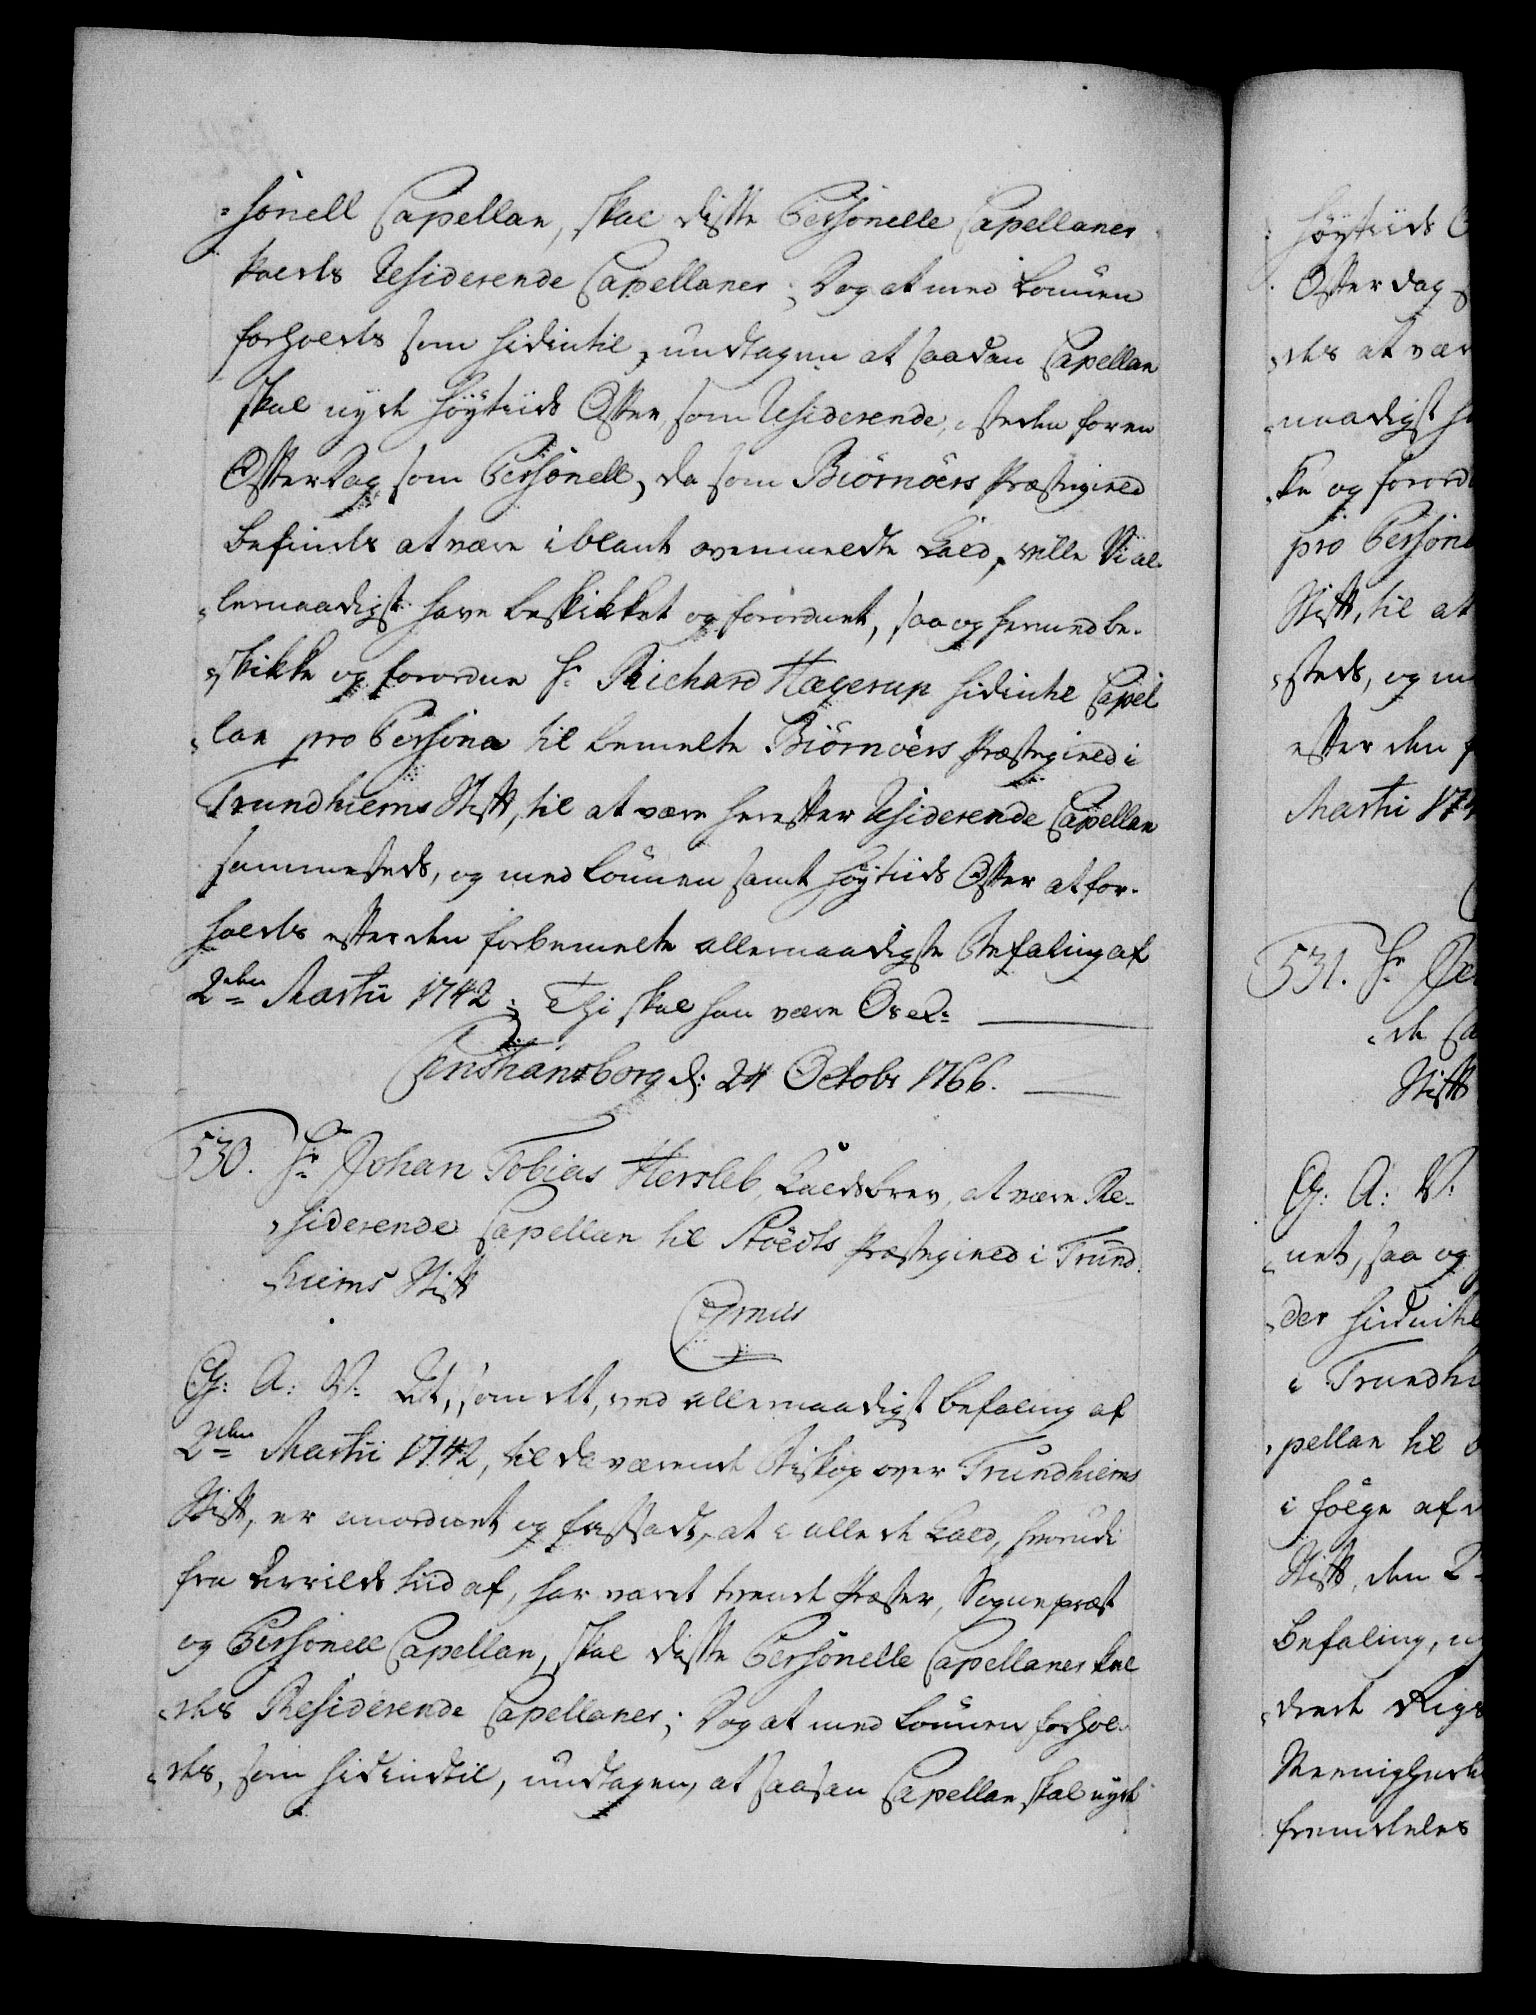 -sonell Capellan, skal disse Personelle Capellaner
kaldes Residerende Capellaner; Dog at med Lønnen
forholdes som hidindtil, undtagen at saadan Capellan
skal nyde Høytiids Offer, som Residerende, i steden for en
Offerdag som Personell, da som Biørnøers Præstegield
befindes at være iblant ovenmeldte Kald, ville Vi al-
lernaadigst have beskikket og forordnet, saa og hermed be-
skikke og forordne Hr. Richard Hagerup hidindtil Capel
lan pro Persona til bemelte Biørnøers Præstegield i
Trundhiems Stift, til at være herefter Residerende Capellan
sammesteds, og med Lønnen samt Høytiids Offer at for-
holdes efter den forbemelte allernaadigste Befaling af
2den Martii 1742; Thi skal han være Os etc:
Christiansborg d: 24 Octobr 1766.
530. Hr Johan Tobias Hersleb, Kaldsbrev, at være Re-
siderende Capellan til Stöeds Præstegield i Trund-
hiems Stift
Gratis
G: A: V: Et, som det, ved allernaadigst befaling af
2den Martii 1742, til da værende Biskop over Trundhiems
Stift, er anordnet og fastsadt, at i alle de Kald, hvorudi
fra Arilds tiid af, har været tvende Præster, Sognepræst
og Personell Capellan, skal disse Personelle Capellaner kal
des Residerende Capellaner; Dog at med Lønnen forhol-
des, som hidindtil, undtagen, at saadan Capellan skal nyde
Høytiids
Offer dag
des at vær
naadigst h
ke og forord
pro Person
Stift, til at
steds, og m
efter den
Martii 174
531. Hr
de Ca
Stift
G: A: V:
net, saa og
der hidindtil
i Trundhi
pellan til
i følge af
Stift, den 2
befaling,
drede Rigs
Meenighede
fremdeles